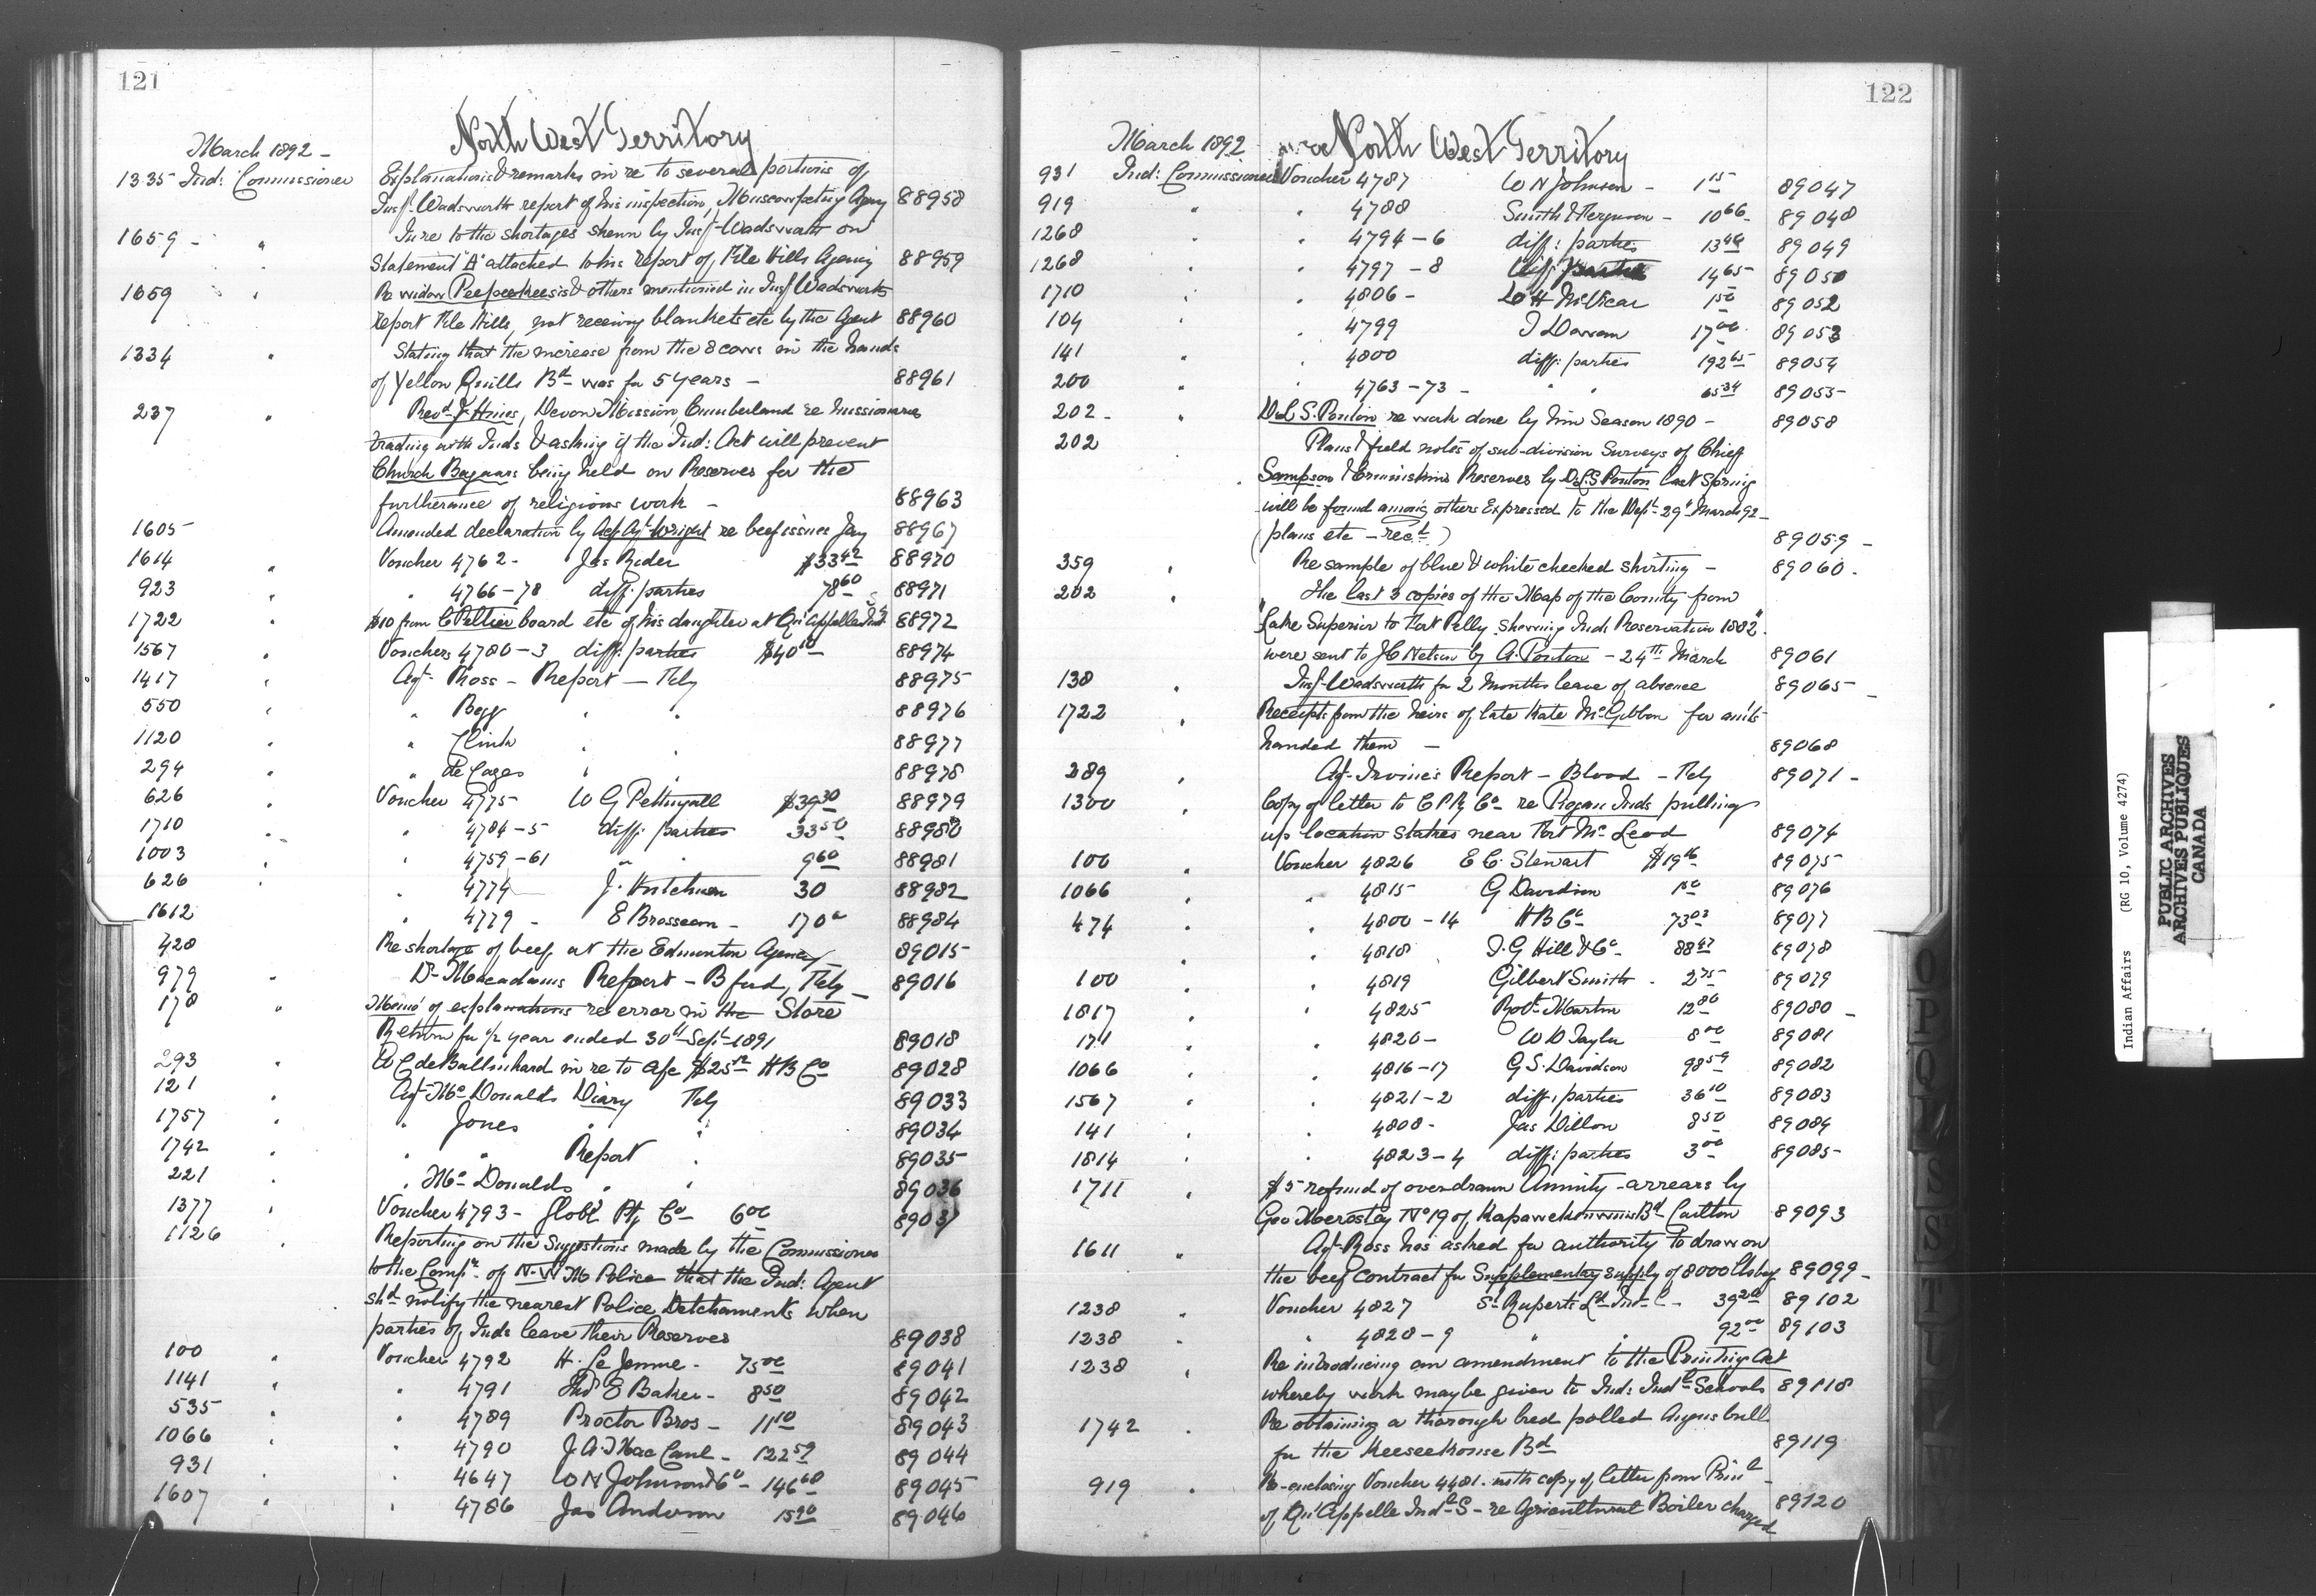 121
North West Territory
March 1892 -
1335 Ind: Commissioner Explanations & remarks in re to several portions of
Insp. Wadsworth report of his inspection, Muscowpetung Agency 88958
1659 - " In re to the shortages shewn by Insp. Wadsworth on
Statement "A" attached to his report of File Hills Agency 88959
1659 " Re widow Peepeekeesis & others mentioned in Insp. Wadsworth
report File Hills, not receiving blankets etc by the Agent 88960
1334 " Stating that the increase from the 8 cows in the hands
of Yellow Quills Bd was for 5 years - 88961
237 " Revd J. Hines, Devon Mission, Cumberland re Missionaries
trading with Inds & asking if the Ind: Act will prevent
Church Bazaars being held on Reserves for the
furtherance of religious work - 88963
1605 Amended declaration by Actg Agt Wright re beef issues Jany 88967
1614 " Voucher 4762 - Jas Rider $33 42 88970
923 " " 4766-78 diff: parties 78 60 88971
1722 " $10 from C Peltier board etc of his daughter at Qu'Appelle Ind S 88972
1567 " Vouchers 4780-3 diff: parties $40 10 88974
1417 " Agt Ross - Report - Feby 88975
550 " " Begg " " 88976
1120 " " Clink " " 88977
294 " " de Cazes " " 88978
626 " Voucher 4775 W G Pettingall $39 30 88979
1710 " " 4784-5 diff: parties 33 50 88980
1003 " " 4759-61 " " 9 60 88981
626 " " 4774 J. Hutchison 30 88982
1612 " 4779 - E Brosseau - 17 00 88984
428 Re shortage of beef at the Edmonton Agency 89015
979 " Dr Macadams Report - B ford, Feby - 89016
178 " Memo of explanations re error in the Store
Return for 1/2 year ended 30th Sept 1891 89018
293 " W C de Ballinhard in re to a/c $25 HB Co 89028
121 " Agt McDonalds Diary Feby 89033
1757 " " Jones " " 89034
1742 " " " Report " 89035
221 " " McDonalds " " 89036
1377 " Voucher 4793 - Globe Ptg Co 6 00 89037
1126 " Reporting on the Suggestions made by the Commissioner
to the Compr of N.W M Police that the Ind: Agent
shd notify the nearest Police Detachments when
parties of Inds leave their Reserves 89038
100 " Voucher 4792 H. Le Jeune - 75 00 89041
1141 " " 4791 Thos E Baker - 8 50 89042
535 " " 4789 Proctor Bros - 11 10 89043
1066 " " 4790 J. A. MacCaul - 122 59 89044
931 " " 4647 W N Johnson & Co - 146 60 89045
1607 " " 4786 Jas Anderson 15 90 89046
122
North West Territory
March 1892
931 Ind: Commissioner Voucher 4787 W N Johnson - 1 15 89047
919 " " 4788 Smith & Ferguson - 10 66 89048
1268 " " 4794-6 diff: parties 13 46 89049
1268 " " 4797-8 diff: parties 14 65 89050
1710 " " 4806 - W H McVicar 1 50 89052
104 " " 4799 17 00 89053
141 " " 4800 diff: parties 192 65 89054
200 " " 4763-73 - " " 65 34 89055
202 - " D.L.S. Ponton re work done by him Season 1890 - 89058
202 Plans & field notes of sub-division Surveys of Chief
Sampson & Ermineskins Reserves by D.L.S. Ponton last Spring
will be found among others Expressed to the Dept 29" March 92 -
(plans etc - recd) 89059 -
359 " Re sample of blue & white checked shirting - 89060 -
202 " The last 3 copies of the Map of the County from
"Lake Superior to Fort Pelly shewing Ind: Reservation 1882"
were sent to J C Nelson by A. Ponton - 24th March 89061
138 " Insp. Wadsworth for 2 months leave of absence 89065 -
1722 " Receipts from the heirs of late Kate McGibbon for amts
handed them - 89068
289 " Agt Irvine's Report - Blood - Feby 89071 -
1300 " Copy of letter to C P Ry Co re Piegan Inds pulling
up location stakes near Fort McLeod 89074
100 " Voucher 4826 E C. Stewart $19 16 89075
1066 " " 4815 G Davidson 1 50 89076
474 " " 4800-14 H B Co 73 03 89077
" " 4818 I. G Hill & Co 88 47 89078
100 " " 4819 Gilbert Smith - 2 75 89079
1817 " " 4825 Robt Martin 12 80 89080 -
171 " " 4820 - W D Taylor 8 00 89081
1066 " " 4816-17 G.S. Davidson 98 59 89082
1567 " " 4821-2 diff: parties 36 10 89083
141 " " 4808 - Jas Dillon 8 50 89084
1814 " " 4823-4 diff: parties 3 00 89085
1711 " $5 refund of overdrawn Annuity - arrears by
Geo No 19 of Bd Carlton 89093
1611 " Agt Ross has asked for authority to draw on
the beef contract for Supplementary supply of 8000 lbs 89099 -
1238 " Voucher 4827 St Ruperts Ld Ind S - 39 20 89102
1238 " " 4828-9 " " 92 00 89103
1238 " Re introducing an amendment to the Printing Act
whereby work may be given to Ind: Indl Schools 89118
1742 " Re obtaining a thorough bred polled Angus bull
for the Keeseekouse Bd 89119
919 " Re-enclosing Voucher 4481 - with copy of letter from Prinl
of Qu'Appelle Indl S - re Agricultural Boiler charged 89120
O
P
Q
S
T
Indian Affairs (RG 10, Volume 4274)
PUBLIC ARCHIVES
ARCHIVES PUBLIQUES
CANADA